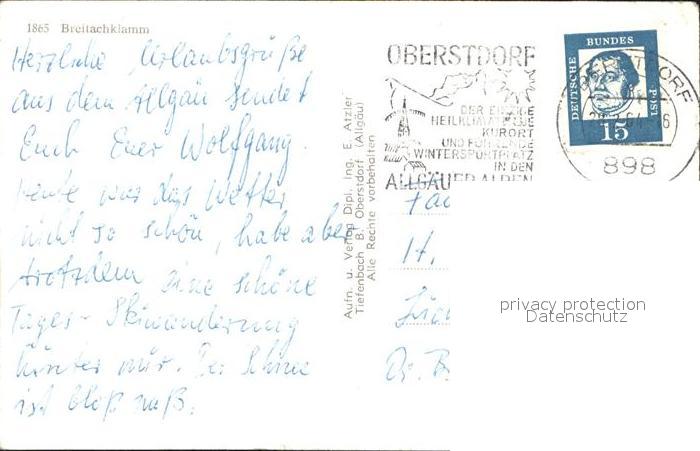 1865 Breitachklamm
Herzliche Urlaubsgrüße
aus dem Allgäu sendet
Euch Euer Wolfgang.
Heute war das Wetter
nicht so schön, habe aber
trotzdem eine schöne
Tages-Skiwanderung
hinter mir. Der Schnee
ist bloß naß.
Aufn. u. Verlag Dipl. Ing. E. Atzler
Tiefenbach B. Oberstdorf (Allgäu)
Alle Rechte vorbehalten
OBERSTDORF
DER EINZIGE
HEILKLIMATISCHE
KURORT
UND FÜHRENDE
WINTERSPORTPLATZ
IN DEN
ALLGÄUER ALPEN
DEUTSCHE
BUNDES
POST
15
OBERSTDORF
898
Fa
H.
Dr. B
privacy protection
Datenschutz